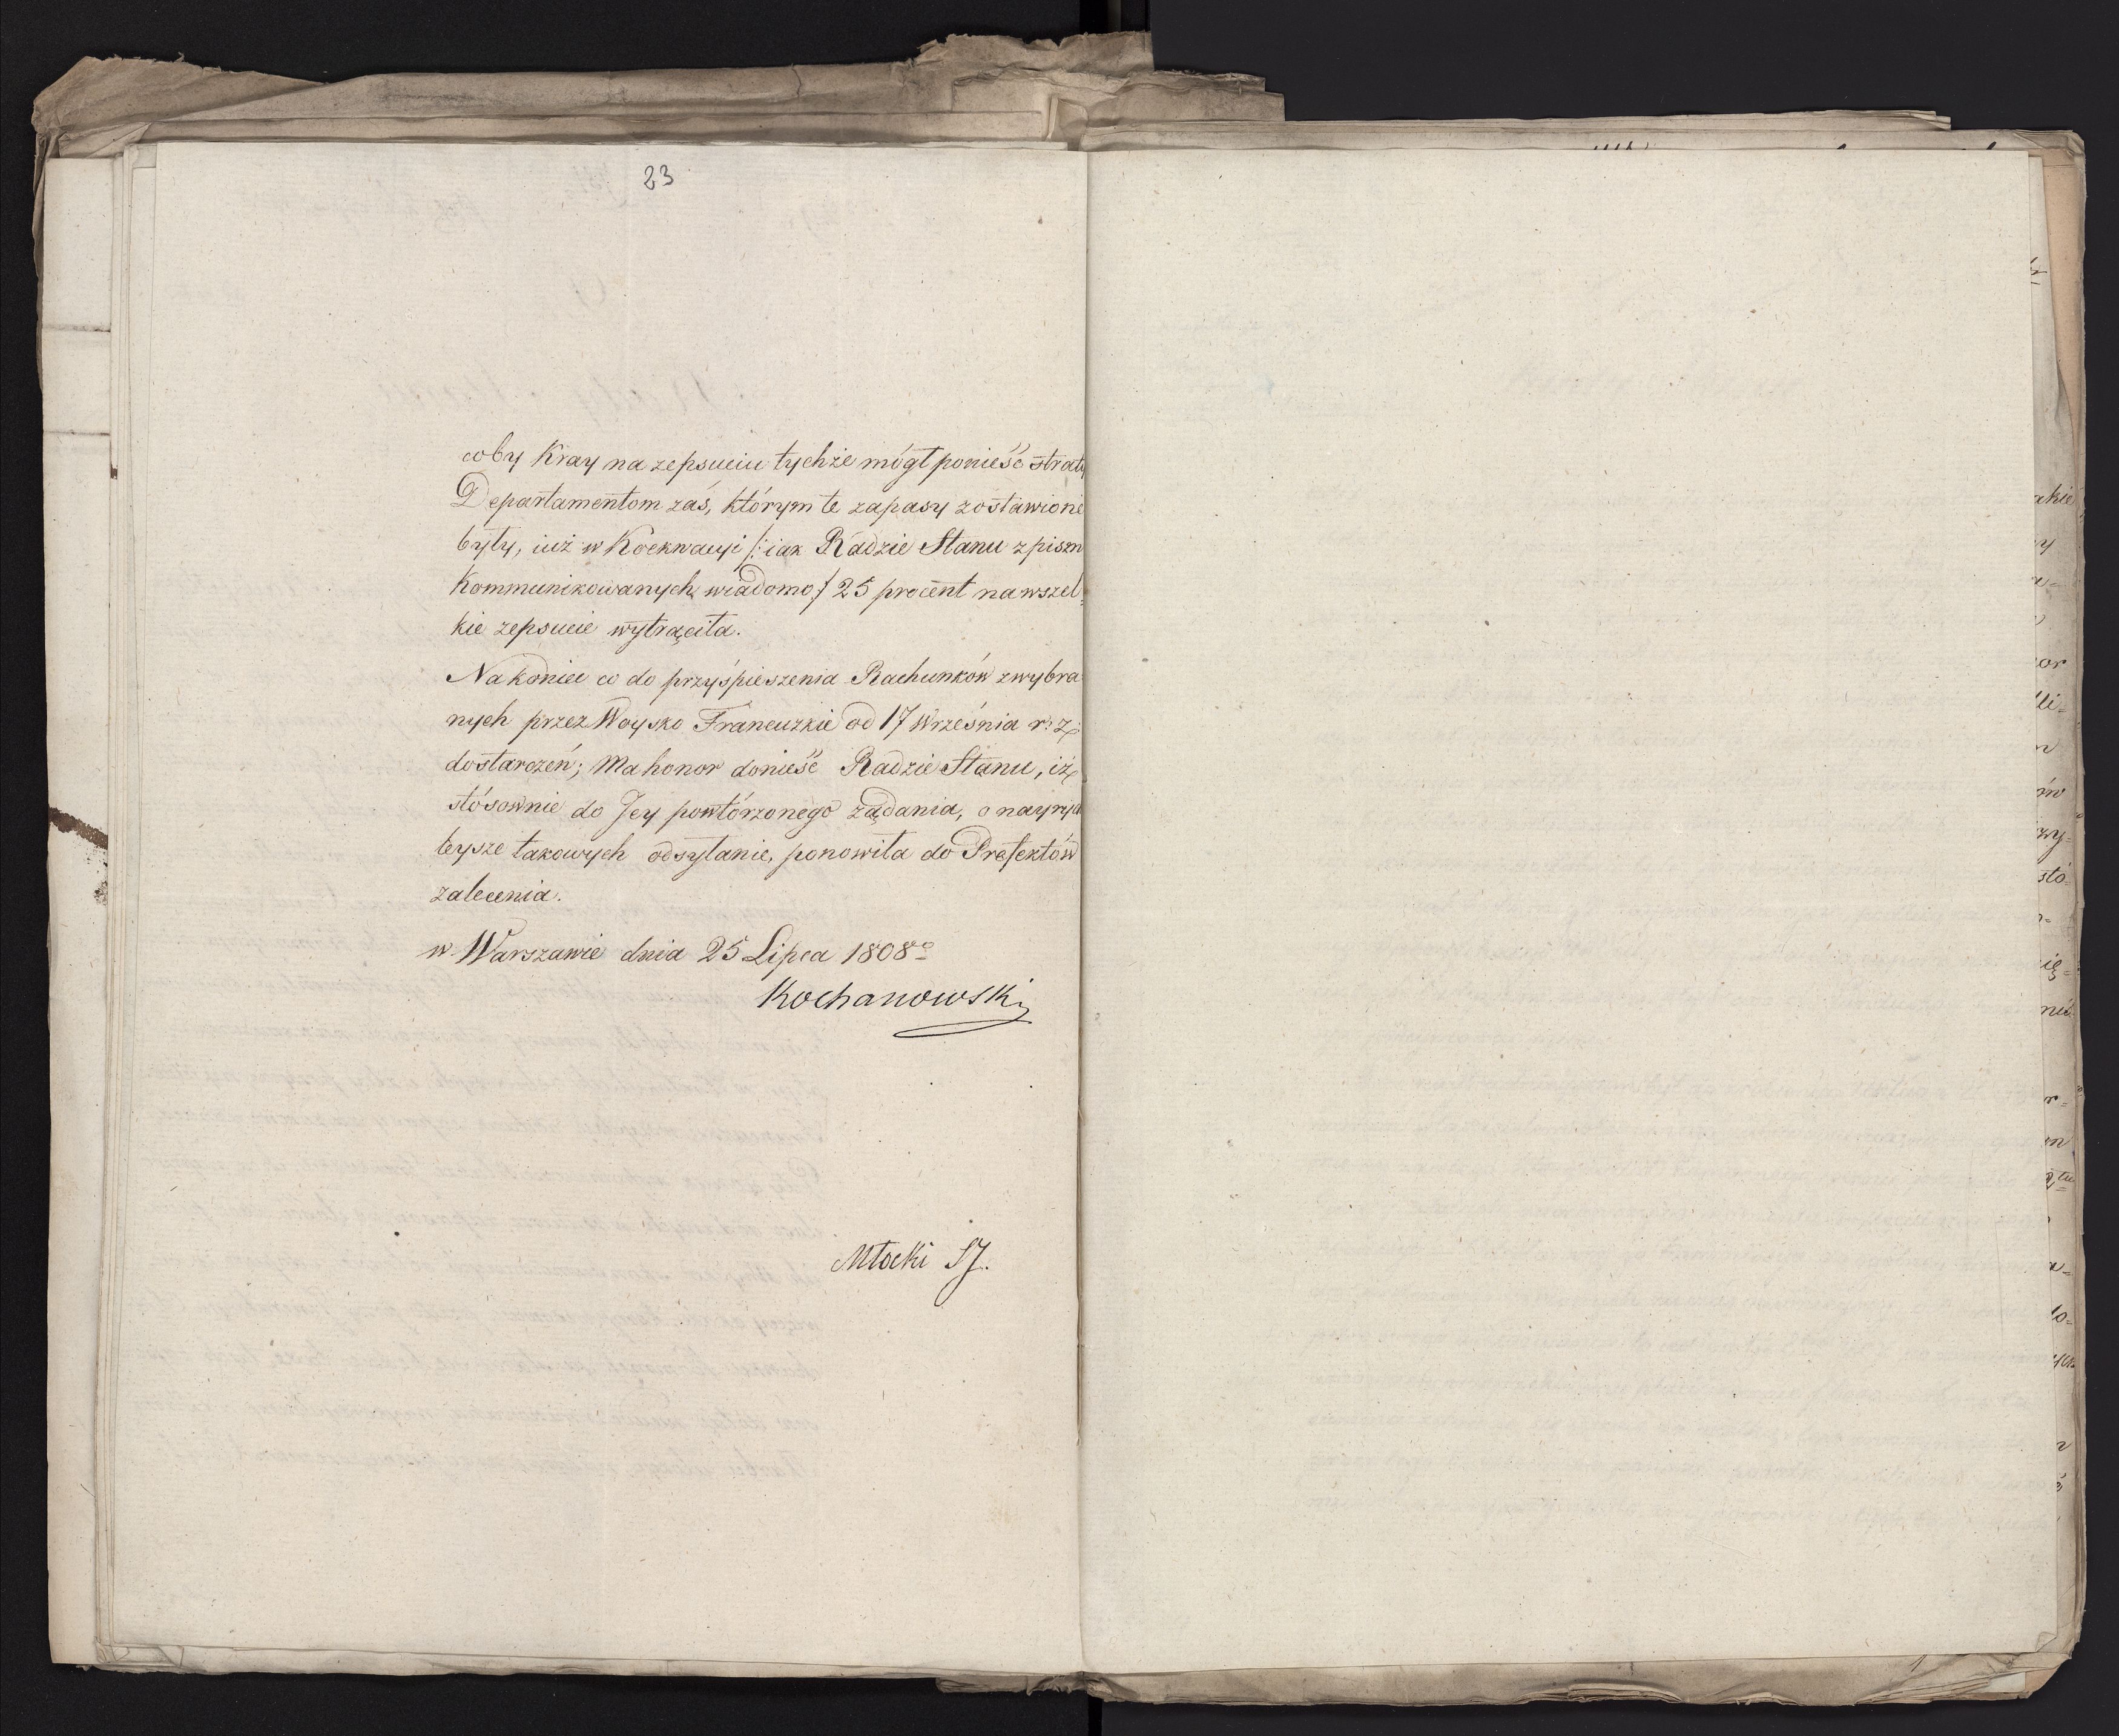 23
coby Kray na zepsuciu tychże mógł ponieść strat
Departamentom zaś, którym te zapasy zostawione
były, iuż w /: iak Radzie Stanu z pism
kommunikowanych wiadomo :/ 25 procent na wszel=
kie zepsucie wytrąciła.
Nakoniec co do przyśpieszenia Rachunków z wybra
nych przez Woysko Francuzkie od 17 Września r: z:
dostarczeń; Ma honor donieść Radzie Stanu, iż
stósownie do Jey powtórzonego żądania, o nayrych
leysze takowych odsyłanie, ponowiła do Prefektów
zalecenia.
w Warszawie dnia 25 Lipca 1808º
Kochanowski
Młocki SJ.